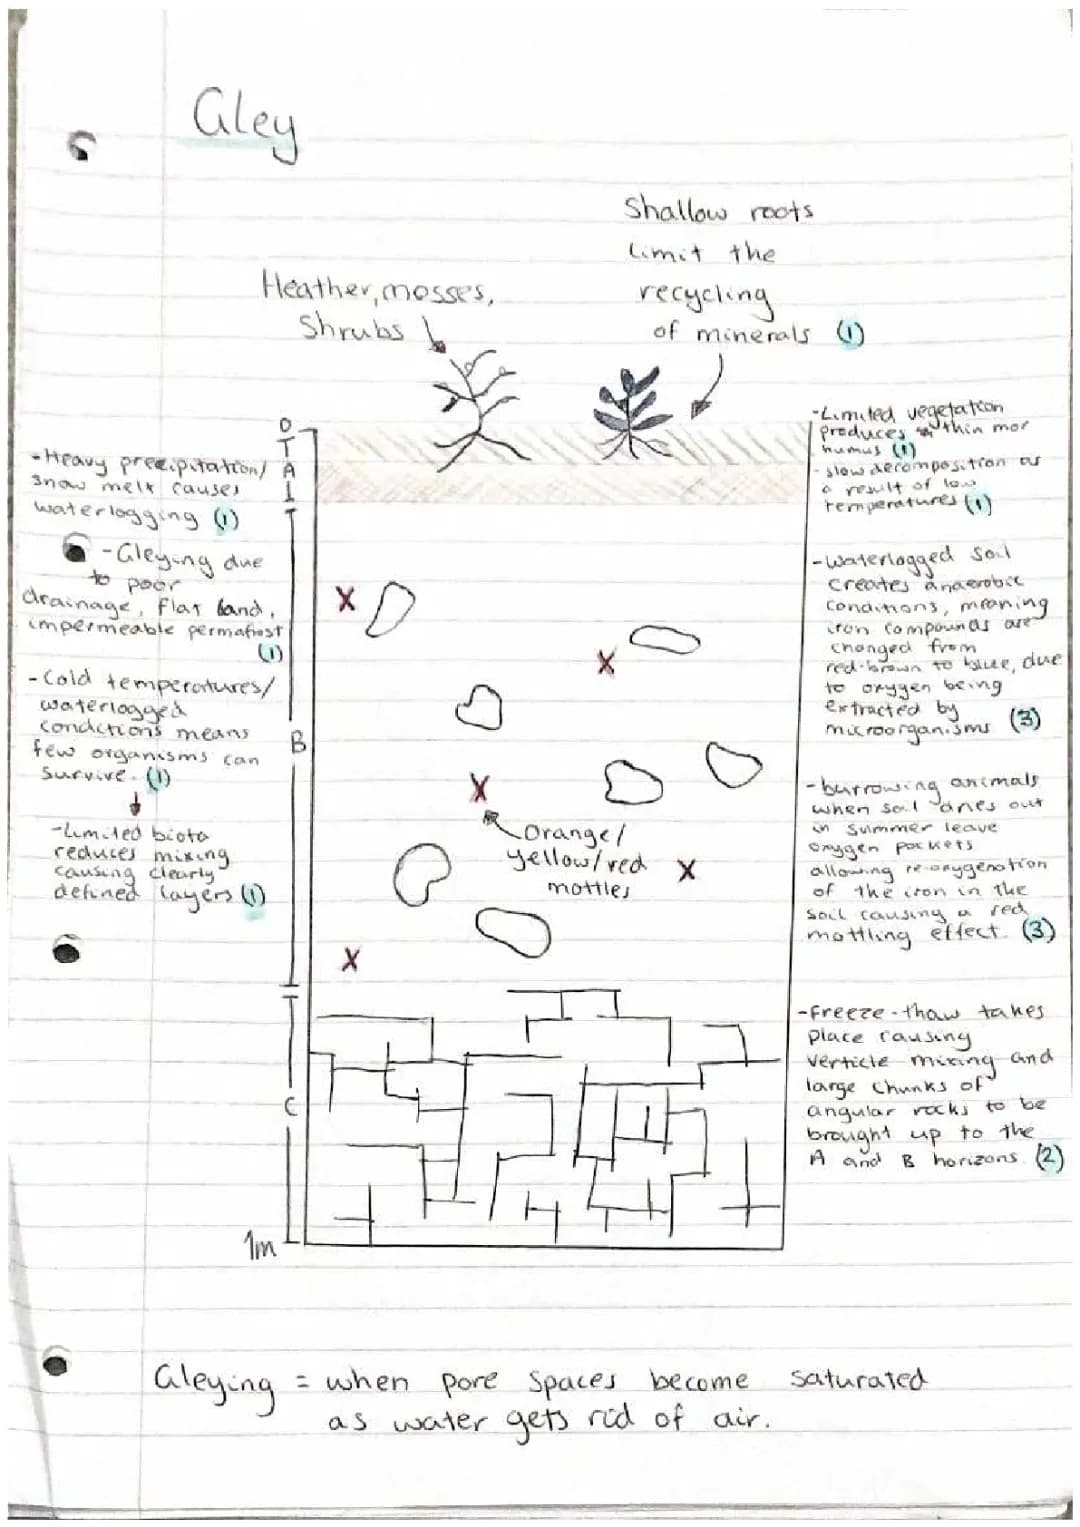 Gley
Shallow roots
limit the
recycling
of minerals (1)
Heather, mosses,
Shrubs
O
A
B
C
1m
-Heavy precipitation/
snow melt causes
waterlogging (1)
-Gleying due
to poor
drainage, flat land,
impermeable permafrost
(1)
-Cold temperatures/
waterlogged
conditions means
few organisms can
survive. (1)
-Limited biota
reduces mixing
causing clearly
defined layers (1)
Orange/
yellow/red
mottles
-Limited vegetation
produces thin mor
humus (1)
-slow decomposition as
a result of low
temperatures (1)
-Waterlogged soil
creates anaerobic
conditions, meaning
iron compounds are
changed from
red-brown to blue, due
to oxygen being
extracted by
microorganisms (3)
-burrowing animals
when soil dries out
in summer leave
oxygen pockets
allowing re-oxygenation
of the iron in the
soil causing a red
mottling effect. (3)
-Freeze-thaw takes
place causing
verticle mixing and
large chunks of
angular rocks to be
brought up to the
A and B horizons. (2)
Gleying = when pore spaces become saturated
as water gets rid of air.